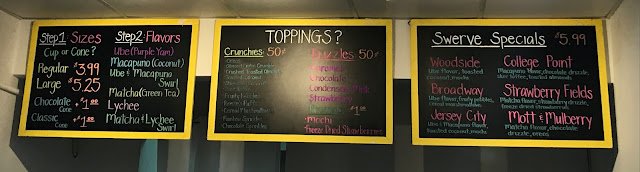 Step 1 Sizes
Cup or Cone?
Regular $3.99
Large $5.25
Chocolate Cone +$1.88
Classic Cone +$1.88
Step 2 Flavors
Ube (Purple Yam)
Macapuno (Coconut)
Ube & Macapuno
Swirl
Matcha (Green Tea)
Lychee
Matcha & Lychee
Swirl
TOPPINGS?
Crunchies: 50¢
Fruity Pebbles
Cereal Marshmallows
Rainbow Sprinkles
Chocolate Sprinkles
Drizzles: 50¢
Caramel
Chocolate
Condensed Milk
Strawberry
$1.88
Mochi
Freeze Dried Strawberries
Swerve Specials $5.99
Woodside
Ube flavor, toasted
coconut, mochi
Broadway
Ube flavor, fruity pebbles,
cereal marshmallows
Jersey City
Ube & Macapuno flavor,
toasted coconut, mochi
College Point
Macapuno flavor, chocolate drizzle,
toasted almonds
Strawberry Fields
Matcha flavor, strawberry drizzle,
freeze dried strawberries
Mott & Mulberry
Matcha flavor, chocolate
drizzle, oreos